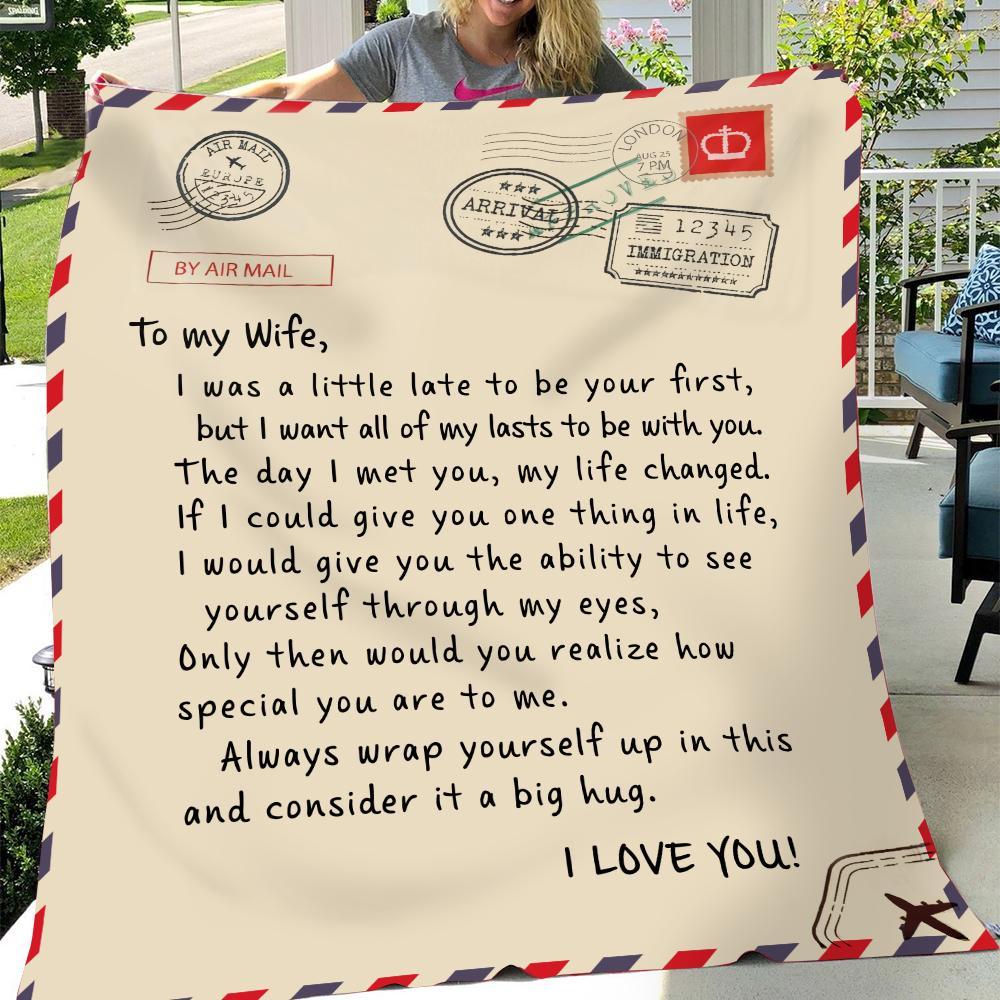 SPALDING
AIR MAIL
EUROPE
12345
LONDON
AUG 25
7 PM
ARRIVAL
12345
IMMIGRATION
BY AIR MAIL
To my Wife,
I was a little late to be your first,
but I want all of my lasts to be with you.
The day I met you, my life changed.
If I could give you one thing in life,
I would give you the ability to see
yourself through my eyes,
Only then would you realize how
special you are to me.
Always wrap yourself up in this
and consider it a big hug.
I LOVE YOU!